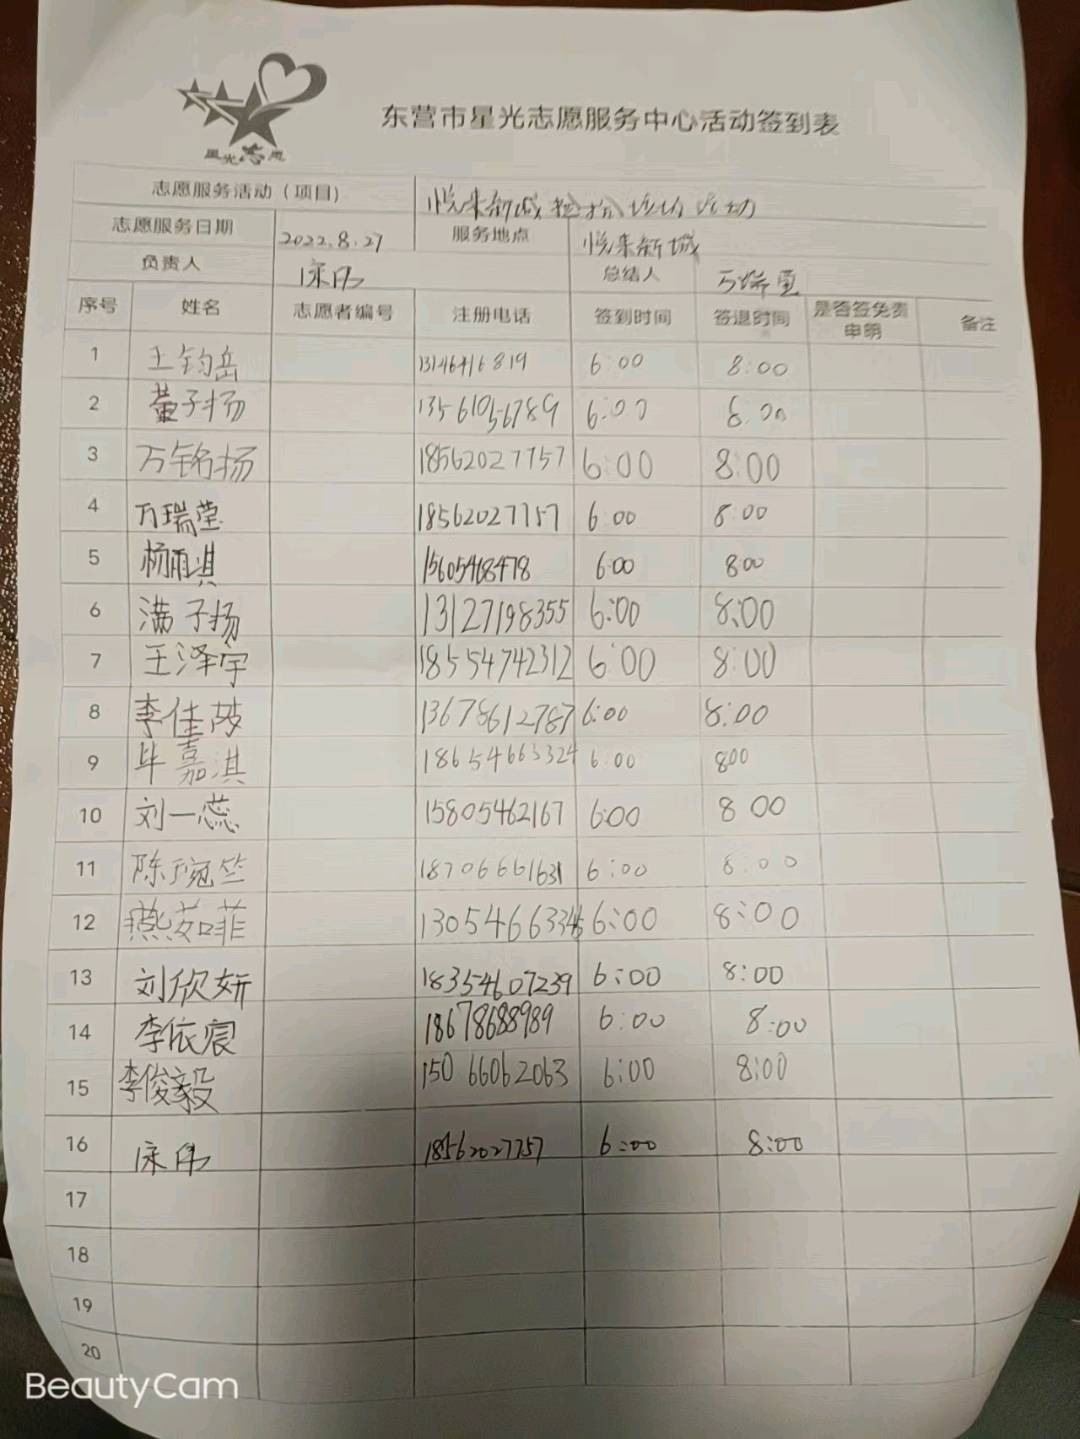 星光志愿
东营市星光志愿服务中心活动签到表
志愿服务活动（项目） 悦来新城 活动
志愿服务日期 2022.8.27 服务地点 悦来新城
负责人 总结人 万瑞
序号 姓名 志愿者编号 注册电话 签到时间 签退时间 是否签免责申明 备注
1 王钧岳 6:00 8:00
2 董子扬 13561056789 6:00 8:00
3 万铭扬 18562027757 6:00 8:00
4 万瑞莹 18562027757 6:00 8:00
5 杨雨淇 15605468478 6:00 8:00
6 满子扬 13127198355 6:00 8:00
7 王泽宇 18554742312 6:00 8:00
8 李佳 13678612787 6:00 8:00
9 毕嘉淇 18654663324 6:00 8:00
10 刘一蕊 15805462167 6:00 8 00
11 陈琬竺 18706661631 6:00 8:00
12 燕茹菲 6:00 8:00
13 刘欣妍 18354607239 6:00 8:00
14 李依宸 18678688989 6:00 8:00
15 李俊毅 150 66062063 6:00 8:00
16 18562027757 6:00 8:00
17
18
19
20
BeautyCam